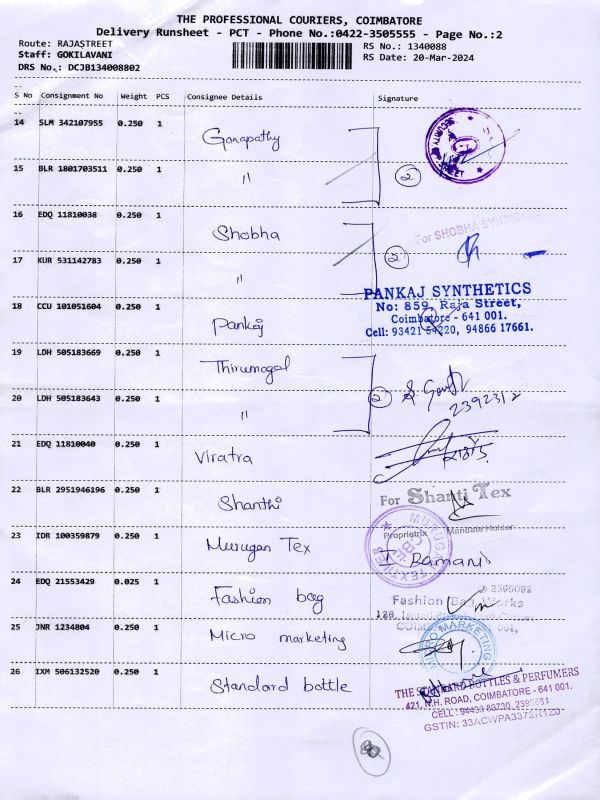 THE PROFESSIONAL COURIERS, COIMBATORE
Delivery Runsheet - PCT - Phone No.:0422-3505555 - Page No.:2
Route: RAJASTREET
RS No.: 1340088
Staff: GOKILAVANI
RS Date: 20-Mar-2024
DRS No.: DCJB134008802
S No Consignment No Weight PCS Consignee Details Signature
14 SLM 342107955 0.250 1 Ganapathy
STREET
15 BLR 1801703511 0.250 1 " 2
16 EDQ 11810038 0.250 1 Shobha
For SHOBHA SYNDICATE
17 KUR 531142783 0.250 1 " 2
PANKAJ SYNTHETICS
No: 859, Raja Street,
18 CCU 101051604 0.250 1 Pankaj
Coimbatore - 641 001.
Cell: 93421 54220, 94866 17661.
19 LDH 505183669 0.250 1 Thirumagal
20 LDH 505183643 0.250 1 " 2
2392312
21 EDQ 11810040 0.250 1 Viratra
22 BLR 2951946196 0.250 1 Shanthi
For Shanti Tex
Proprietrix Mandate Holder
23 IDR 100359879 0.250 1 Murugan Tex
MURUGAN TEXTILES
CBE
24 EDQ 21553429 0.025 1 Fashion bag
2399092
Fashion Bag Works
25 JNR 1234804 0.250 1 Micro marketing
MICRO MARKETING
26 IXM 506132520 0.250 1 Standard bottle
THE STANDARD BOTTLES & PERFUMERS
421, N.H. ROAD, COIMBATORE - 641 001.
CELL : 94433 
GSTIN: 33ACWPA3372R1Z0